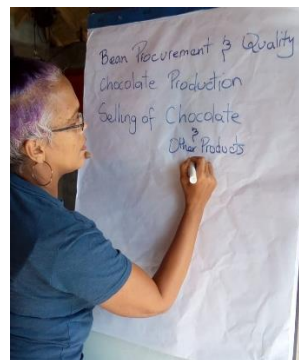 Bean Procurement & Quality
Chocolate Production
Selling of Chocolate
&
Other Products